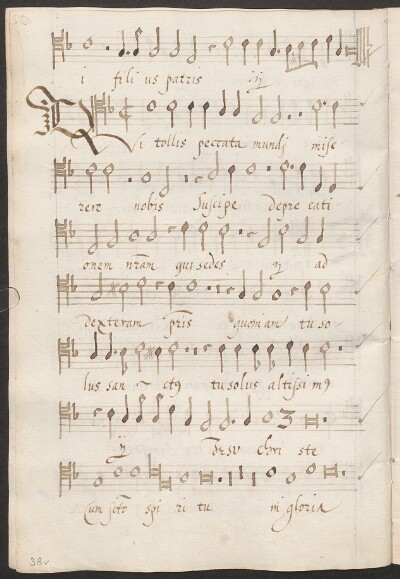 i fili us patris ij
Qui tollis peccata mundj mise
rere nobis Suscipe depre cati
onem nr̄am qui sedes ij ad
dexteram p̄ris quoniam tu so
lus san ctꝰ tu solus altissi mꝰ
ij Iesu chri ste
Cum sc̄to spi ri tu in gloria
38v